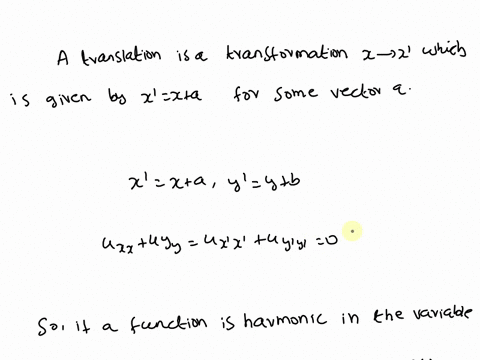 A translation is a transformation x→x' which
is given by x'=x+a for some vector a.
x'=x+a, y'=y+b
u_xx+u_yy = u_x'x' + u_y'y' = 0
So, if a function is harmonic in the variable